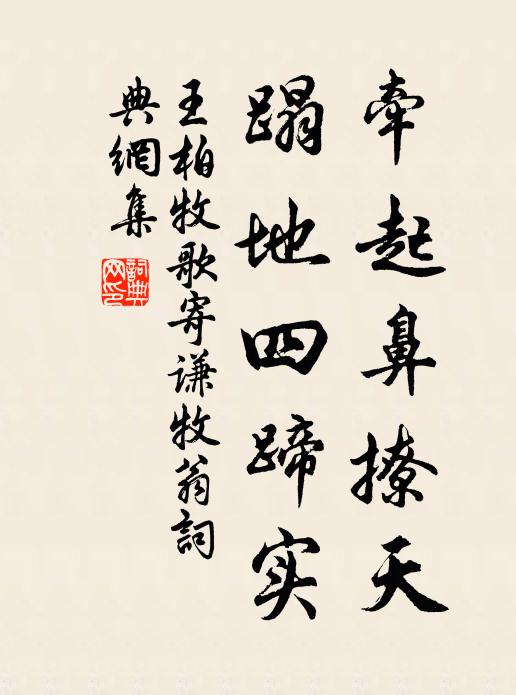 牵起鼻撩天
蹋地四蹄实
王柏牧歌寄谦牧翁詞
典網集
詞典
网印